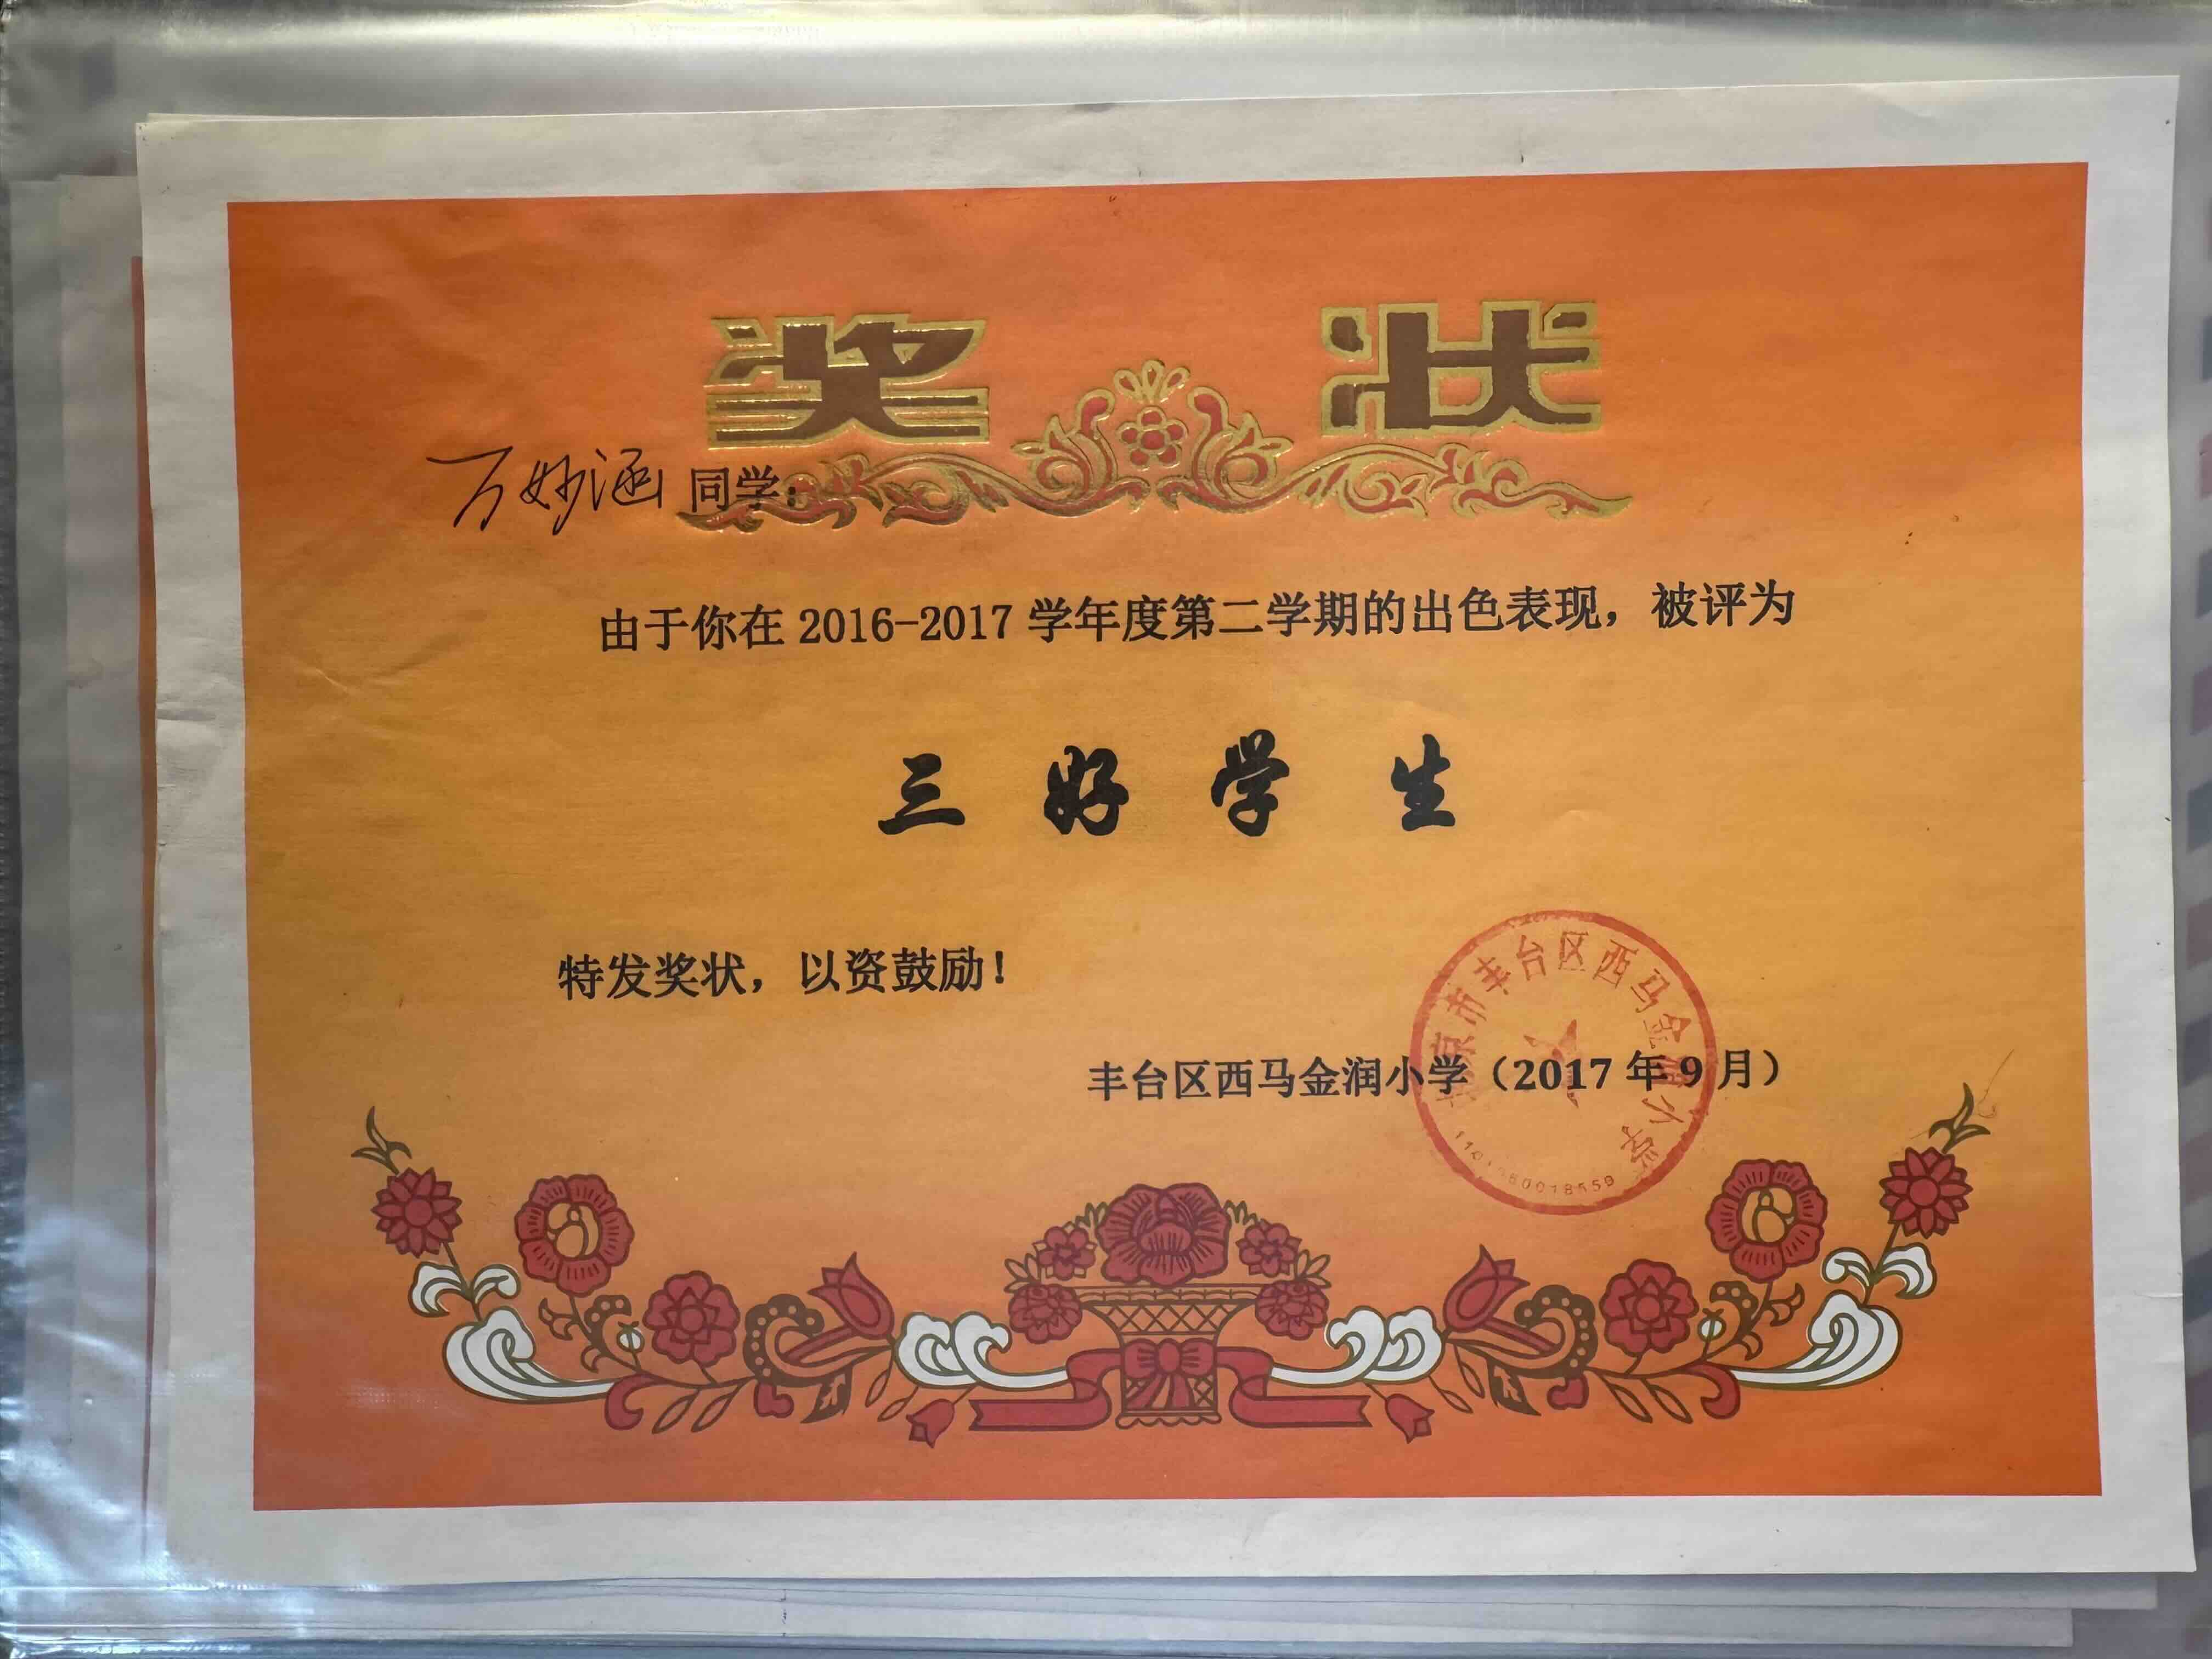 奖状
万妙涵 同学：
由于你在 2016-2017 学年度第二学期的出色表现，被评为
三好学生
特发奖状，以资鼓励！
丰台区西马金润小学（2017 年 9 月）
北京市丰台区西马金润小学